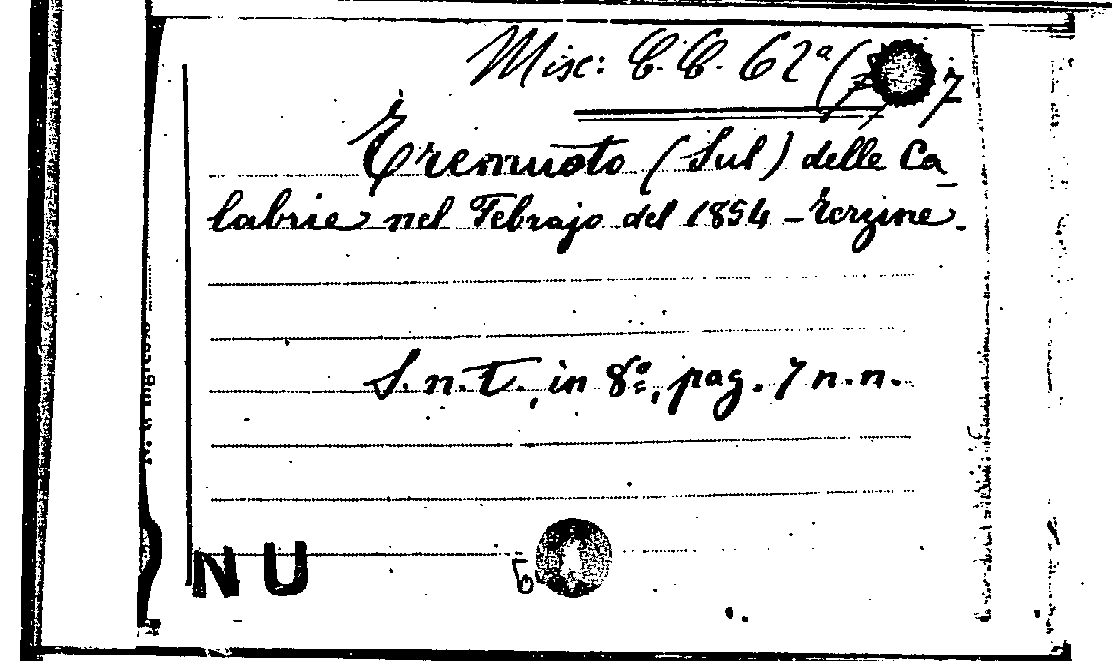 Misc: C. C. 62ª (7
Tremuoto (Sul) delle Ca
labrie nel Febrajo del 1854 – Terzine.
S. n. t., in 8º, pag. 7 n. n.
NU